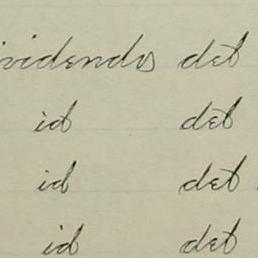 ividendos det
id det
id det
id det